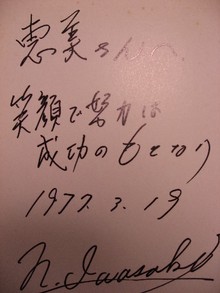 恵美さんへ
笑顔で努力は
成功のもとなり
1977.3.19
N. Iwasaki